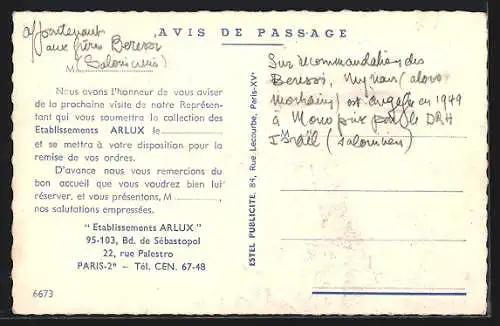 AVIS DE PASSAGE
appartenant
aux frères Beressi
M (Saloniciens)
Nous avons l'honneur de vous aviser
de la prochaine visite de notre Représen-
tant qui vous soumettra la collection des
Etablissements ARLUX le
et se mettra à votre disposition pour la
remise de vos ordres.
D'avance nous vous remercions du
bon accueil que vous voudrez bien lui
réserver, et vous présentons, M
nos salutations empressées.
"Etablissements ARLUX"
95-103, Bd. de Sébastopol
22, rue Palestro
PARIS-2e - Tél. CEN. 67-48
6673
ESTEL PUBLICITE, 84, Rue Lecourbe, Paris-XVe
Sur recommandation des
Beressi, (alors
) est engagé en 1949
à Monoprix par le DRH
M
Israël (salonicien)